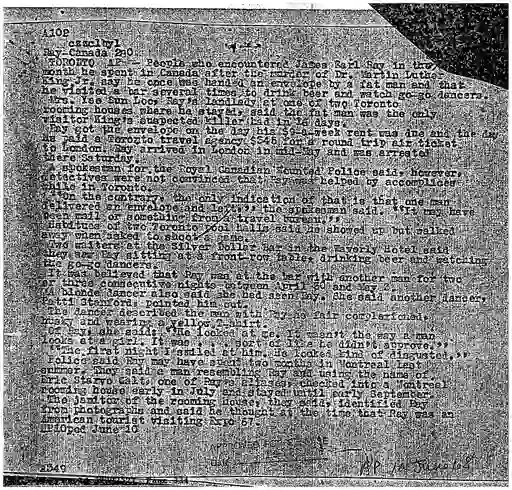 A102
czzclbyl
Ray-Canada 290
TORONTO AP -- People who encountered James Earl Ray in the
month he spent in Canada after the murder of Dr. Martin Luther
King Jr. say he once was handed an envelope by a fat man and that
he visited a bar several times to drink beer and watch go-go dancers.
Mrs. Yee Sun Loo, Ray's landlady at one of two Toronto
rooming houses where he stayed, said the fat man was the only
visitor King's suspected killer had in 26 days.
Ray got the envelope on the day his $9-a-week rent was due and the day
he paid a Toronto travel agency $345 for a round trip air ticket
to London. Ray arrived in London in mid-May and was arrested
there Saturday.
A spokesman for the Royal Canadian Mounted Police said, however,
detectives were not convinced that Ray was helped by accomplices
while in Toronto.
"On the contrary, the only indication of that is that one man
delivered an envelope and left," the spokesman said. "It may have
been mail or something from a travel bureau."
Habitues of two Toronto pool halls said he showed up but walked
away when asked to shoot a game.
Two waiters at the Silver Dollar Bar in the Waverly Hotel said
they saw Ray sitting at a front-row table, drinking beer and watching
the go-go dancers.
It was believed that Ray was at the bar with another man for two
or three consecutive nights between April 30 and May 2.
A blonde dancer also said she had seen Ray. She said another dancer,
Patti pointed him out.
The dancer described the man with Ray as fair complexioned,
husky and wearing a yellow T-shirt.
Of Ray, she said: "He looked at me. It wasn't the way a man
looks at a girl. It was . . . sort of like he didn't approve."
"The first night I smiled at him. He looked kind of disgusted."
Police said Ray may have spent two months in Montreal last
summer. They said a man resembling Ray and using the name of
Eric Starvo Galt, one of Ray's aliases, checked into a Montreal
rooming house early in July and stayed until early September.
The janitor of the rooming house, they said, identified Ray
from photographs and said he thought at the time that Ray was an
American tourist visiting Expo 67.
June 10
AP 10 June 68